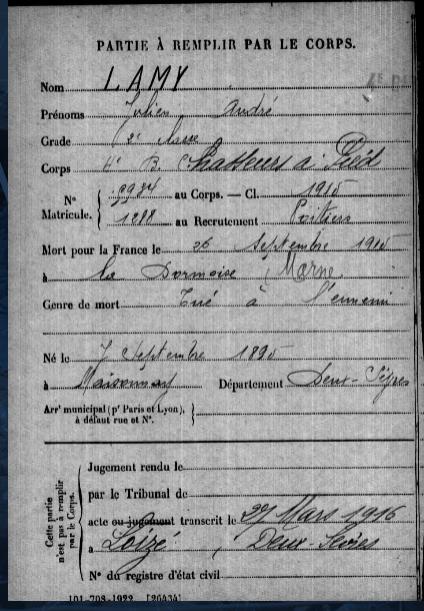 PARTIE À REMPLIR PAR LE CORPS.
Nom LAMY
Prénoms Julien André
Grade 2e classe
Corps B. Chasseurs à Pied
N° Matricule. { au Corps. — Cl. 1915
1288 au Recrutement Poitiers
Mort pour la France le 26 Septembre 1915
à la Dormoise Marne
Genre de mort Tué à l'ennemi
Né le 7 Septembre 1895
à Maisonnay Département Deux-Sèvres
Arrt municipal (pr Paris et Lyon), à défaut rue et N°.
Cette partie n'est pas à remplir par le Corps.
Jugement rendu le
par le Tribunal de
acte ou jugement transcrit le 27 Mars 1916
à Loizé, Deux-Sèvres
N° du registre d'état civil
101-708-1922. [26434]